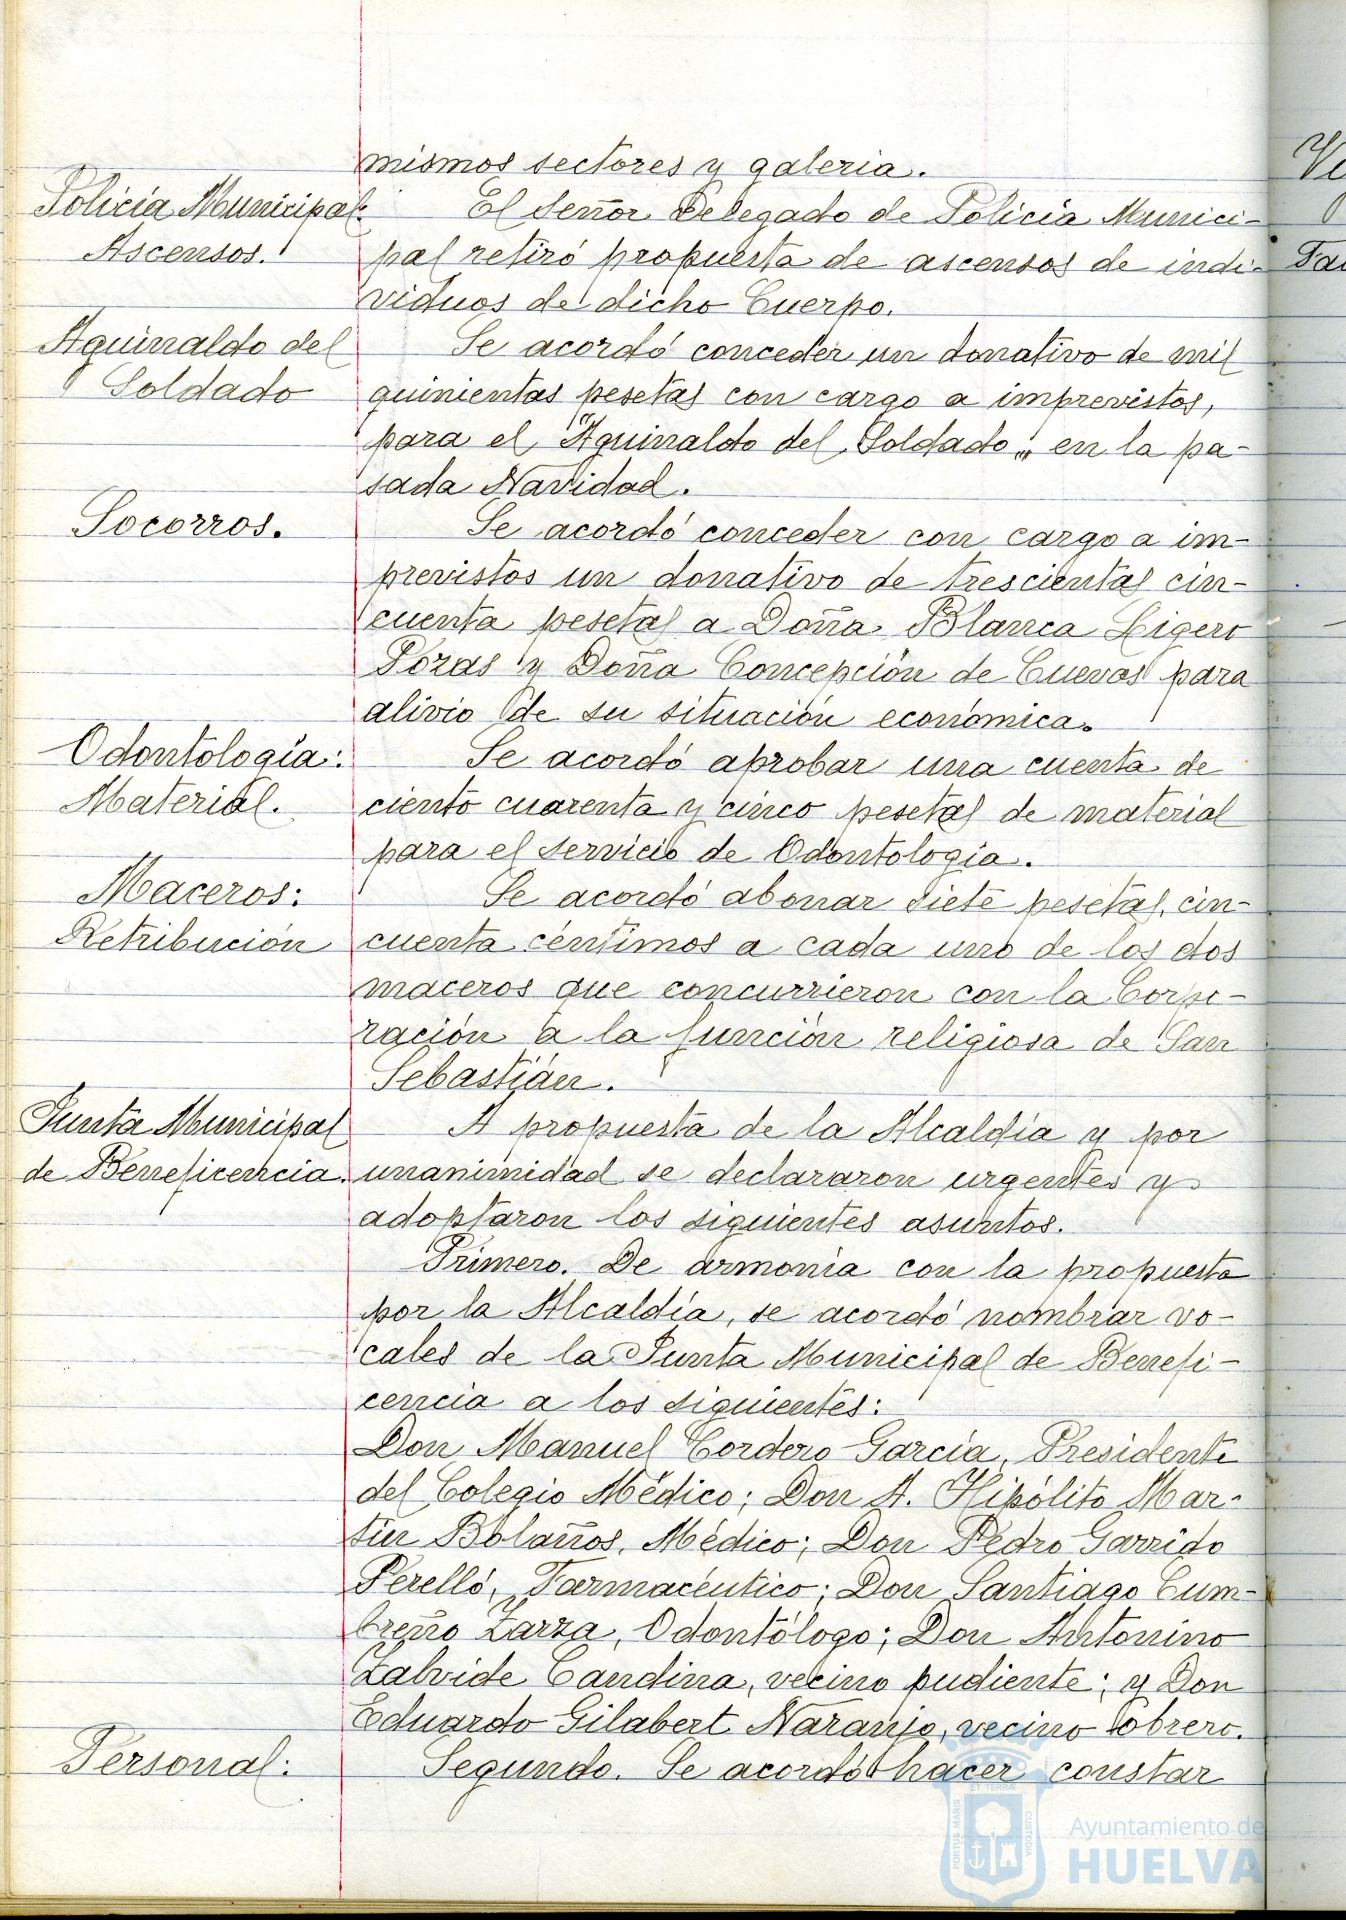 mismos sectores y galeria.
Policía Municipal:
Ascensos.
El Señor Delegado de Policía Munici-
pal retiró propuesta de ascensos de indi-
viduos de dicho Cuerpo.
Aguinaldo del
Soldado
Se acordó conceder un donativo de mil
quinientas pesetas con cargo a imprevistos,
para el "Aguinaldo del Soldado" en la pa-
sada Navidad.
Socorros.
Se acordó conceder con cargo a im-
previstos un donativo de trescientas cin-
cuenta pesetas a Doña Blanca Ligero
Pozas y Doña Concepción de Cuevas para
alivio de su situación económica.
Odontología:
Material.
Se acordó aprobar una cuenta de
ciento cuarenta y cinco pesetas de material
para el servicio de Odontología.
Maceros:
Retribución
Se acordó abonar siete pesetas, cin-
cuenta céntimos a cada uno de los dos
maceros que concurrieron con la Corpo-
ración a la función religiosa de San
Sebastián.
Junta Municipal
de Beneficencia.
A propuesta de la Alcaldía y por
unanimidad se declararon urgentes y
adoptaron los siguientes asuntos.
Primero. De armonía con la propuesta
por la Alcaldía, se acordó nombrar vo-
cales de la Junta Municipal de Benefi-
cencia a los siguientes:
Don Manuel Cordero García, Presidente
del Colegio Médico; Don A. Hipólito Mar-
tín Bolaños, Médico; Don Pedro Garrido
Perelló, Farmacéutico; Don Santiago Cum-
breño Zarza, Odontólogo; Don Antonino
Zalvide Candina, vecino pudiente; y Don
Eduardo Gilabert Naranjo, vecino obrero.
Personal:
Segundo. Se acordó hacer constar
ET TERRÆ
PORTUS MARIS
CUSTODIA
Ayuntamiento de
HUELVA